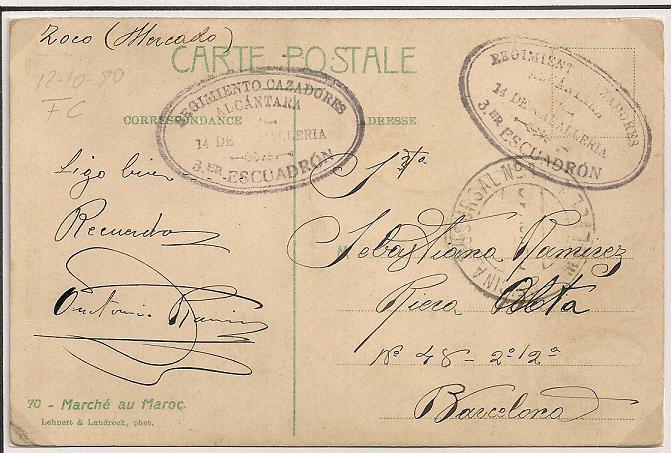 Zoco (Mercado)
CARTE POSTALE
12-10-80
FC
CORRESPONDANCE
ADRESSE
REGIMIENTO CAZADORES
ALCÁNTARA
14 DE CABALLERIA
3.ER ESCUADRÓN
REGIMIENTO CAZADORES
ALCÁNTARA
14 DE CABALLERIA
3.ER ESCUADRÓN
SUCURSAL Nº
MELILLA
Sigo bien
Recuerdos
Antonio Ramirez
Srta
Sebastiana Ramirez
Riera Blta
Nº 48 - 2º/2ª
Barcelona
70 - Marché au Maroc.
Lehnert & Landrock, phot.